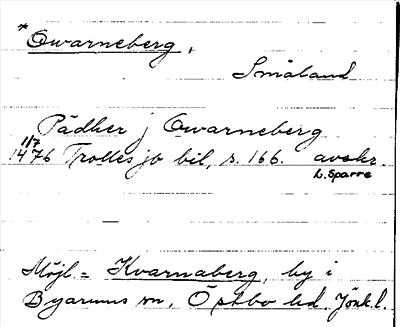 *Qwarneberg,
Småland
Pädher j Qwarneberg
1/7
1476 Trolles jb bil, s. 166. avskr.
L. Sparre
Möjl. = Kvarnaberg, by i
Byarums sn, Östbo hd. Jönk. l.